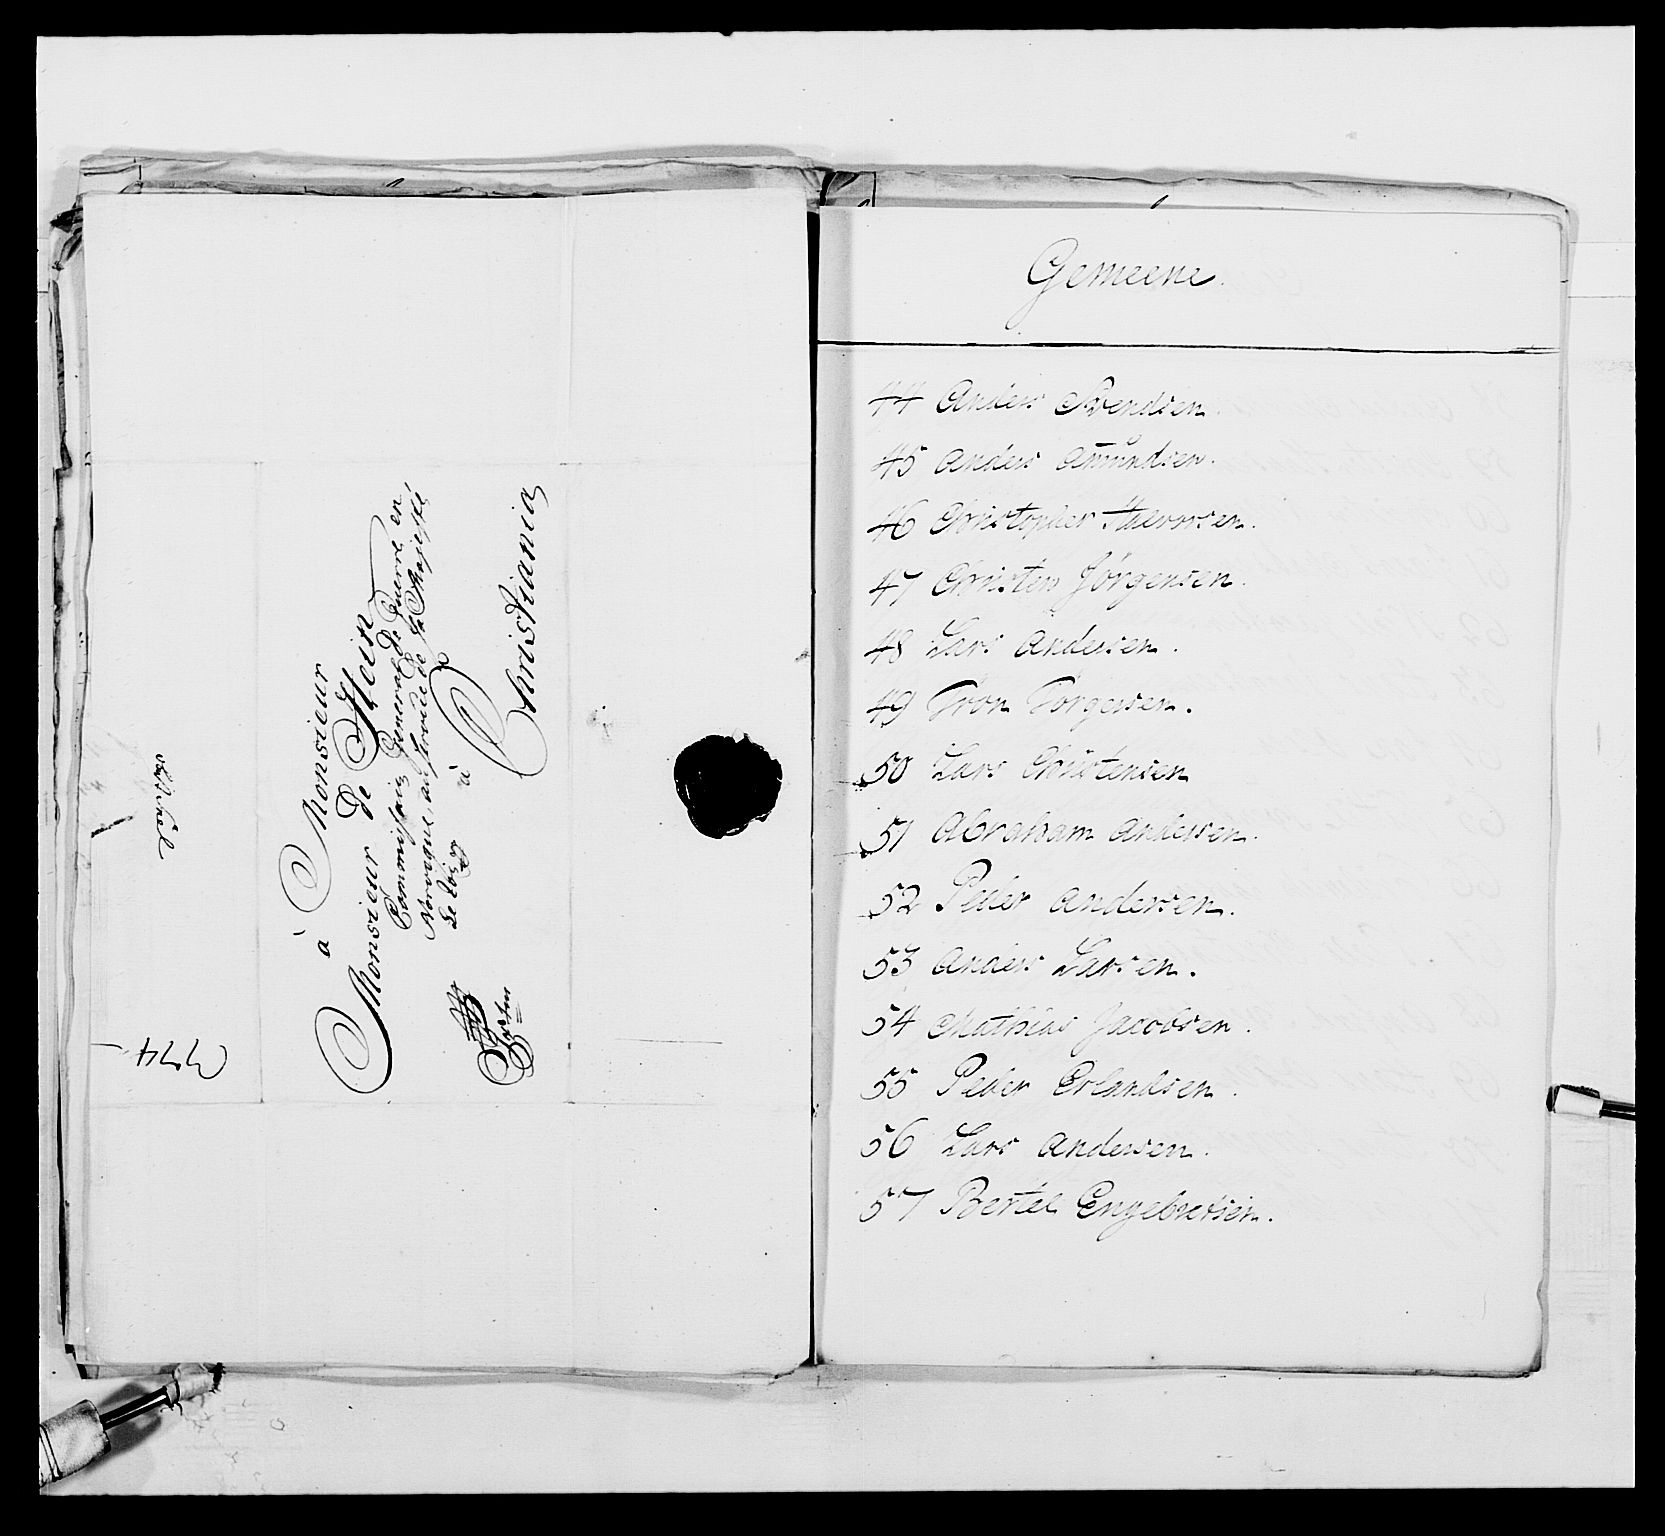 à Monsieur
Monsieur de Klein
Commissaire General de Guerre en
Norvegue, au service de Sa Majesté,
de logis à
Christiania
Gemeene.
44 Anders Svendsen.
45 Anders Amundsen.
46 Christopher Halvorsen.
47 Christen Jörgensen.
48 Lars Andersen.
49 Tron Torgersen.
50 Lars Christensen
51 Abraham Andersen.
52 Peder Andersen.
53 Anders Larsen.
54 Mathias Jacobsen.
55 Peder Erlandsen.
56 Lars Andersen.
57 Bertel Engebretsen.